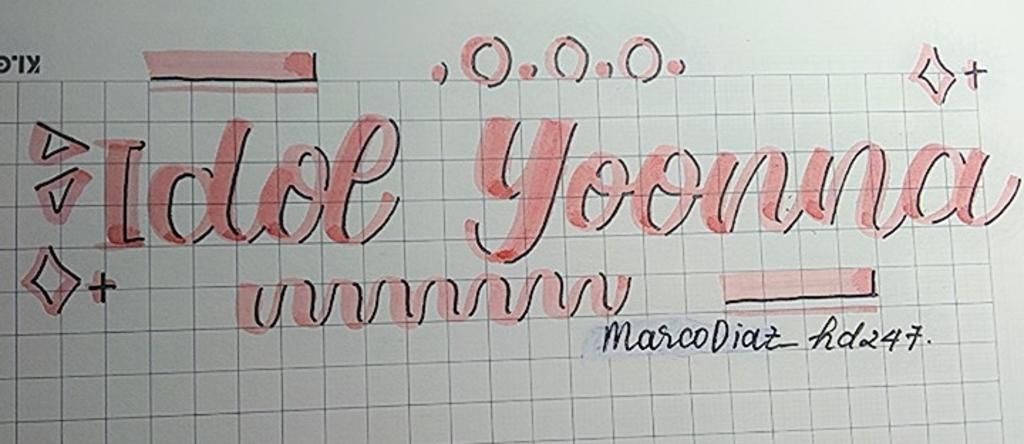 KI.GI
Idol Yoonna
MarcoDiaz_hd247.